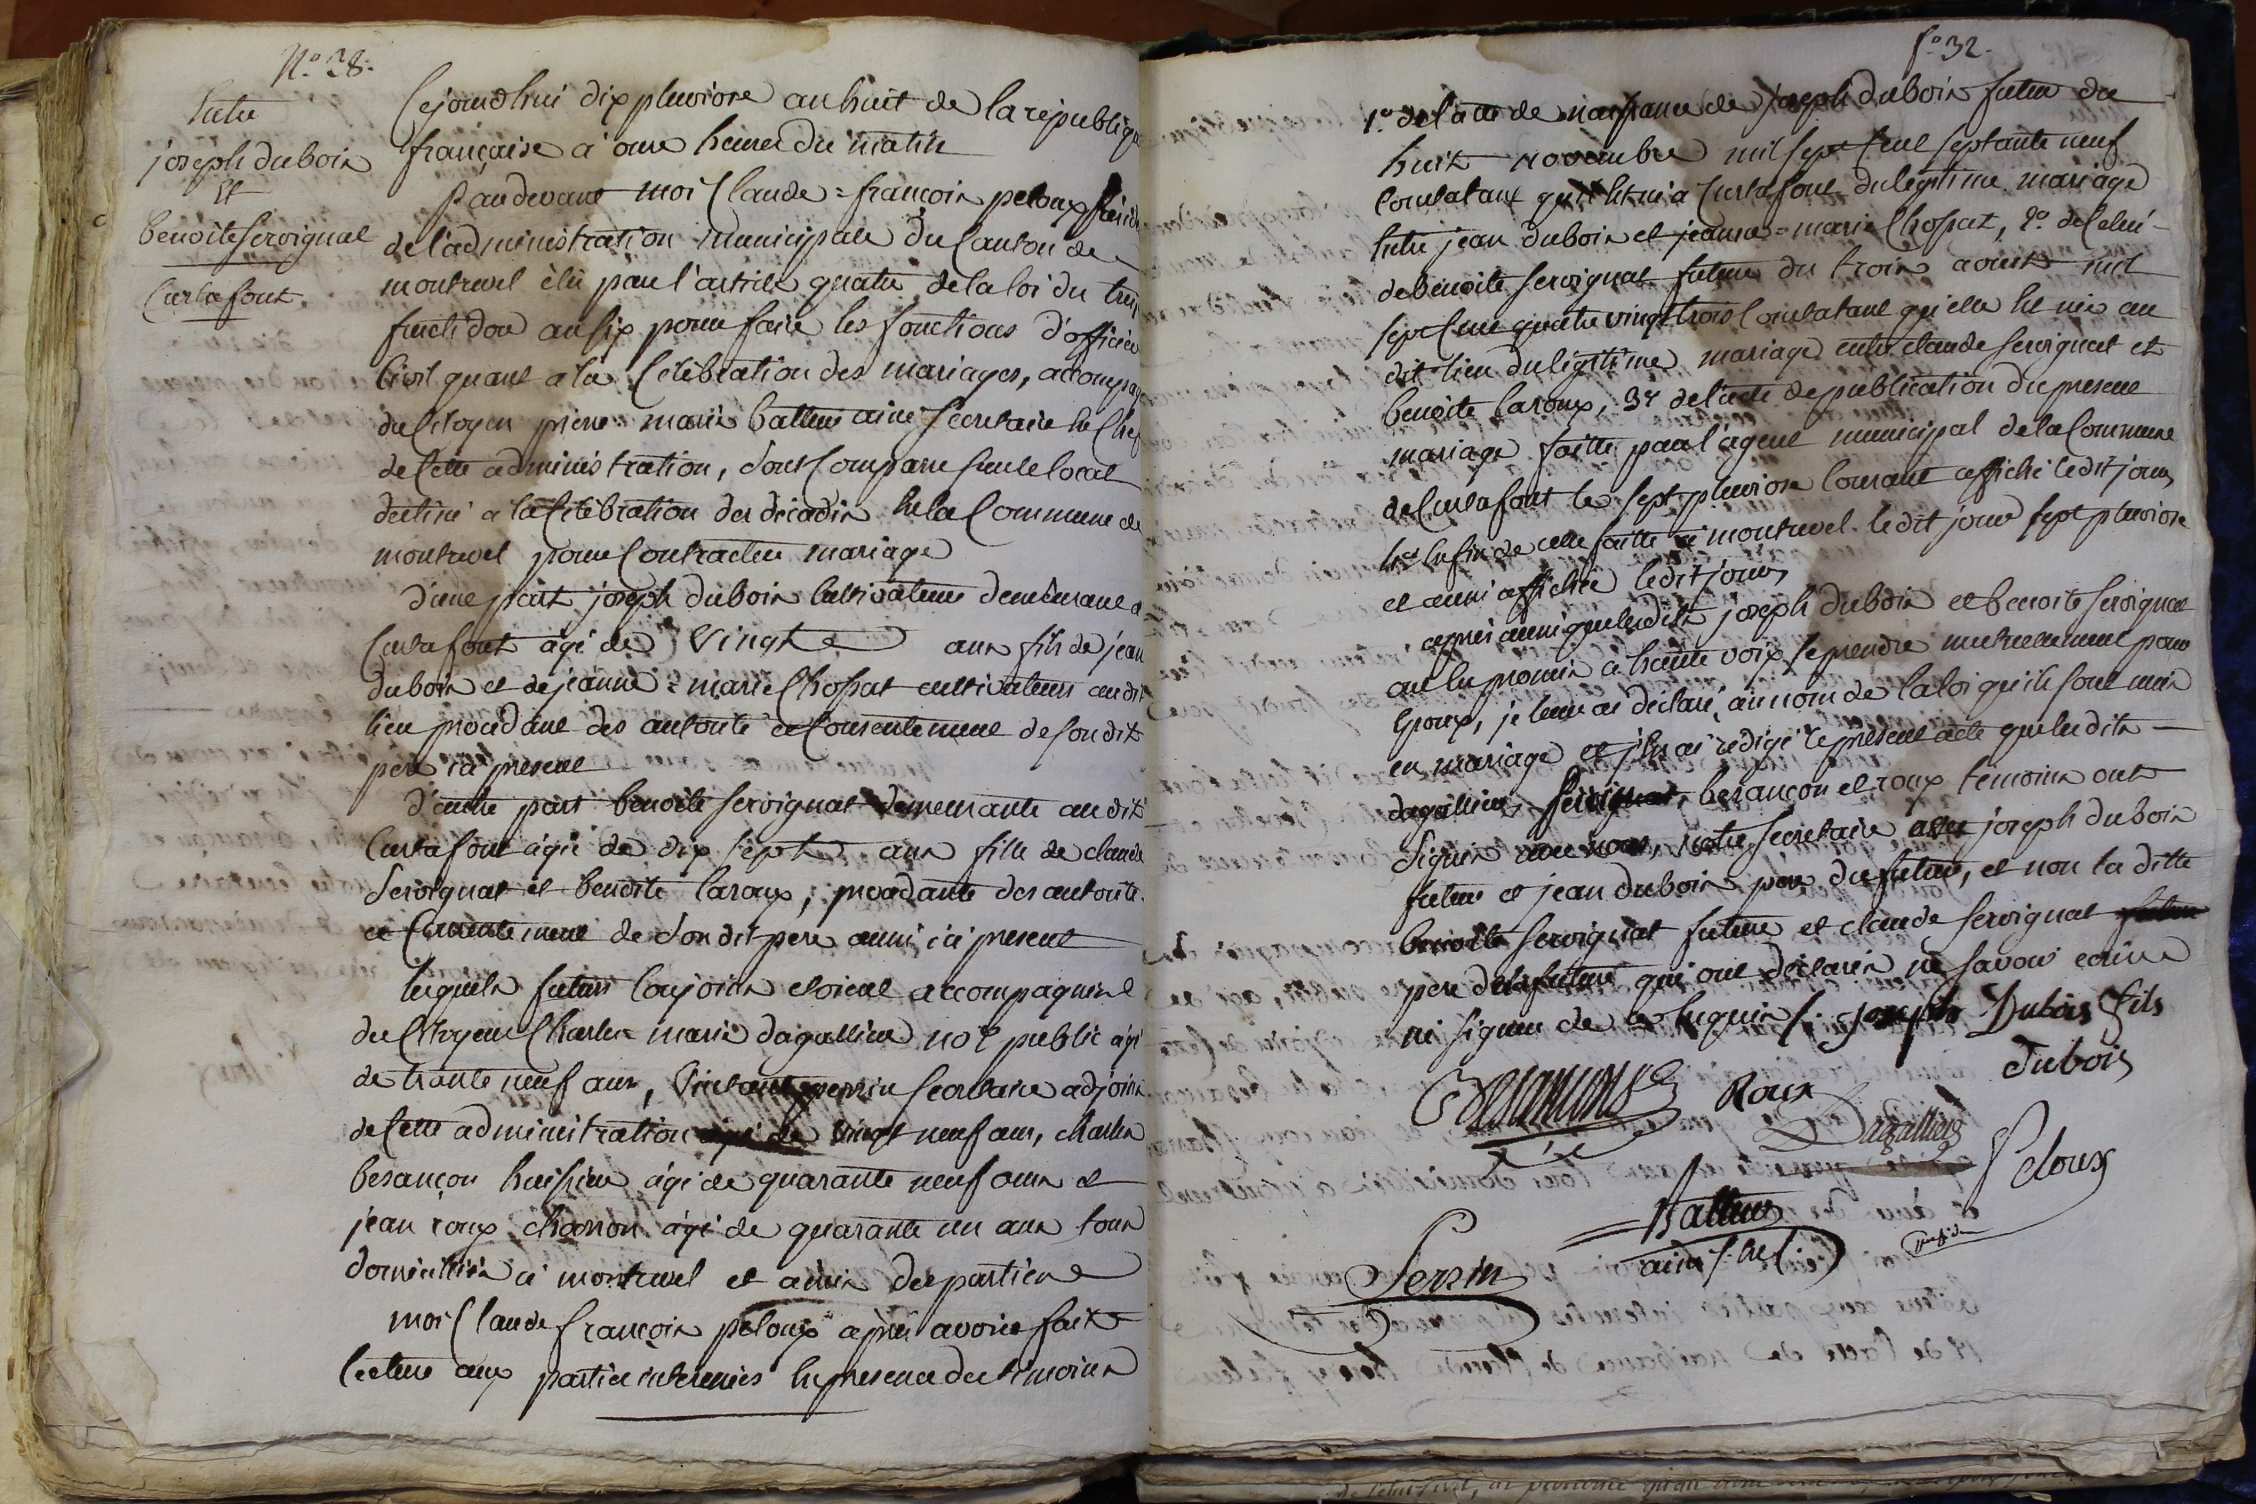 N.° 38.
Entre
joseph duboin
Et
benoite servignat
Curtafont.
Cejourdhui dix pluviose an huit de la republique
française à onze heures du matin
Pardevant moi Claude=françoin peloux
de l'administration municipale du Canton de
montrevel élu par l'article quatre de la loi du treize
fructidor an six pour faire les fonctions d'officier
Civil quant a la Célébration des mariages, accompagné
du Citoyen pierre=marie batteur ainé Secretaire En Chef
de Cette administration, sont Comparu sur le local
destiné a la Célébration des décadin En la Commune de
montrevel pour Contracter mariage
D'une part joseph duboin Cultivateur demeurant a
Curtafont agé de vingt ans fils de jean
duboin et de jeanne=marie Chossat cultivateurs audit
lieu procédant des autorité et Consentement de son dit
pere ici présent
D'autre part benoite servignat demeurante audit
Curtafont agée de dix sept ans fille de claude
Servignat et benoite laroux, procédante des autorité
et Consentement de son dit pere aussi ici present
lesquels futurs Conjoin etoient accompagnés
du Citoyen Charle=marie dagallier no.re public agé
de trante neuf ans, perrin Secretaire adjoin
de Cette administration agé de vingt neuf ans, charles
besançon huissier agé de quarante neuf ans et
jean roux charron agé de quarante un ans tous
domiciliés à montrevel et amis des parties
moi Claude françoin peloux après avoir fait
lecture aux parties interessées En presence des témoins
f.° 32.
1.° de l'acte de naissance de joseph duboin futur du
huit novembre mil sept Cent septante neuf
Constatant qu'il Est né a Curtafont du légitime mariage
Entre jean duboin et jeanne=marie Chossat, 2.° de Celui
de benoite servignat future du trois aoust mil
sept Cent quatre vingt trois Constatant qu'elle Est née au
dit lieu du légitime mariage entre claude servignat et
benoite laroux, 3.° de l'acte de publication du present
mariage faitte par l'agent municipal de la Commune
de Curtafont le sept pluviose Courant affiché ledit jour
Enfin de celle faitte a montrevel ledit jour sept pluviose
et aussi affichée ledit jour
après aussi que lesdits joseph duboin et benoite servignat
ont Eu promis a haute voix se prendre mutuellement pour
Epoux, je leur ai déclaré au nom de la loi qu'ils sont unis
en mariage et j'En ai rédigé le présent acte que lesdits
dagallier, besançon et roux témoins ont
Signés avec nous, notre Secretaire joseph duboin
futur et jean duboin pere du futur, et non la ditte
benoite servignat future et claude servignat
pere de la future qui ont déclarés ne savoir ecrire
ni signer de ce Enquis /. joseph Dubois fils
Dubois
C Besançons
Roux
Dagallier
Peloux
Batteur
ainé S. En Ch
Perrin